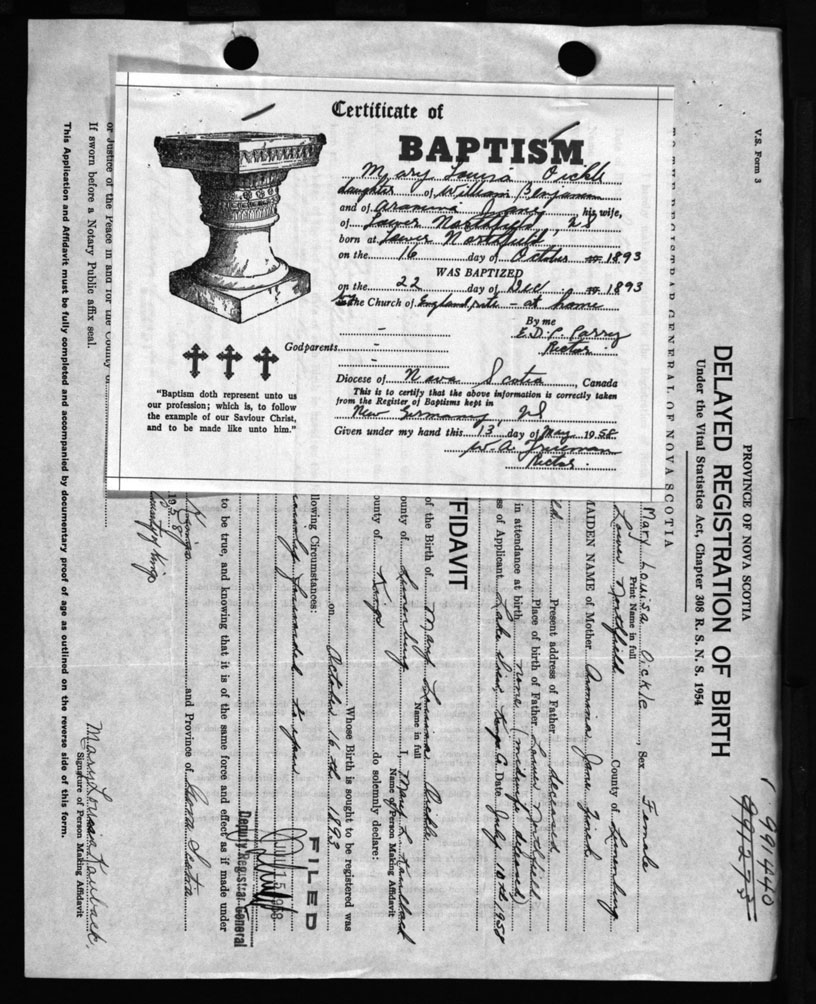 Certificate of
BAPTISM
Mary Louisa Oickle
daughter of William Benjamin
and of Aramina Jane his wife,
of Lower Northfield, NS
born at Lower Northfield
on the 16 day of October 1893
WAS BAPTIZED
on the 22 day of Dec 1893
the Church of England rite - at home
By me
E.D.P. Parry
Rector
Godparents
Diocese of Nova Scotia, Canada
This is to certify that the above information is correctly taken
from the Register of Baptisms kept in
New Germany, NS
Given under my hand this 13 day of May 1958
W.A. Trueman
Rector.
"Baptism doth represent unto us
our profession; which is, to follow
the example of our Saviour Christ,
and to be made like unto him."
V.S. Form 3
PROVINCE OF NOVA SCOTIA
DELAYED REGISTRATION OF BIRTH
Under the Vital Statistics Act, Chapter 308 R. S. N. S. 1954
991440
991275
TO THE REGISTRAR GENERAL OF NOVA SCOTIA
Mary Louisa Oickle, Sex Female
Print Name in full
Lower Northfield County of Lunenburg
MAIDEN NAME of Mother Armina Jane
Present address of Father deceased
Place of birth of Father Lower Northfield
in attendance at birth none (midwife deceased)
ss of Applicant Lake View, Kings Co. Date July 10th 1958
FFIDAVIT
of the Birth of Mary Louisa Oickle
Name in full
ounty of Lunenburg I, Mary L. Kaulback
Name of Person Making Affidavit
ounty of Kings do solemnly declare:
Whose Birth is sought to be registered was
on October 16th 1893
llowing Circumstances:
FILED
JUL 15 1958
Deputy Registrar General
to be true, and knowing that it is of the same force and effect as if made under
Kings and Province of Nova Scotia
1958
County of Kings
Mary Louisa Kaulback
Signature of Person Making Affidavit
or Justice of the Peace in and for the County of
If sworn before a Notary Public affix seal.
This Application and Affidavit must be fully completed and accompanied by documentary proof of age as outlined on the reverse side of this form.